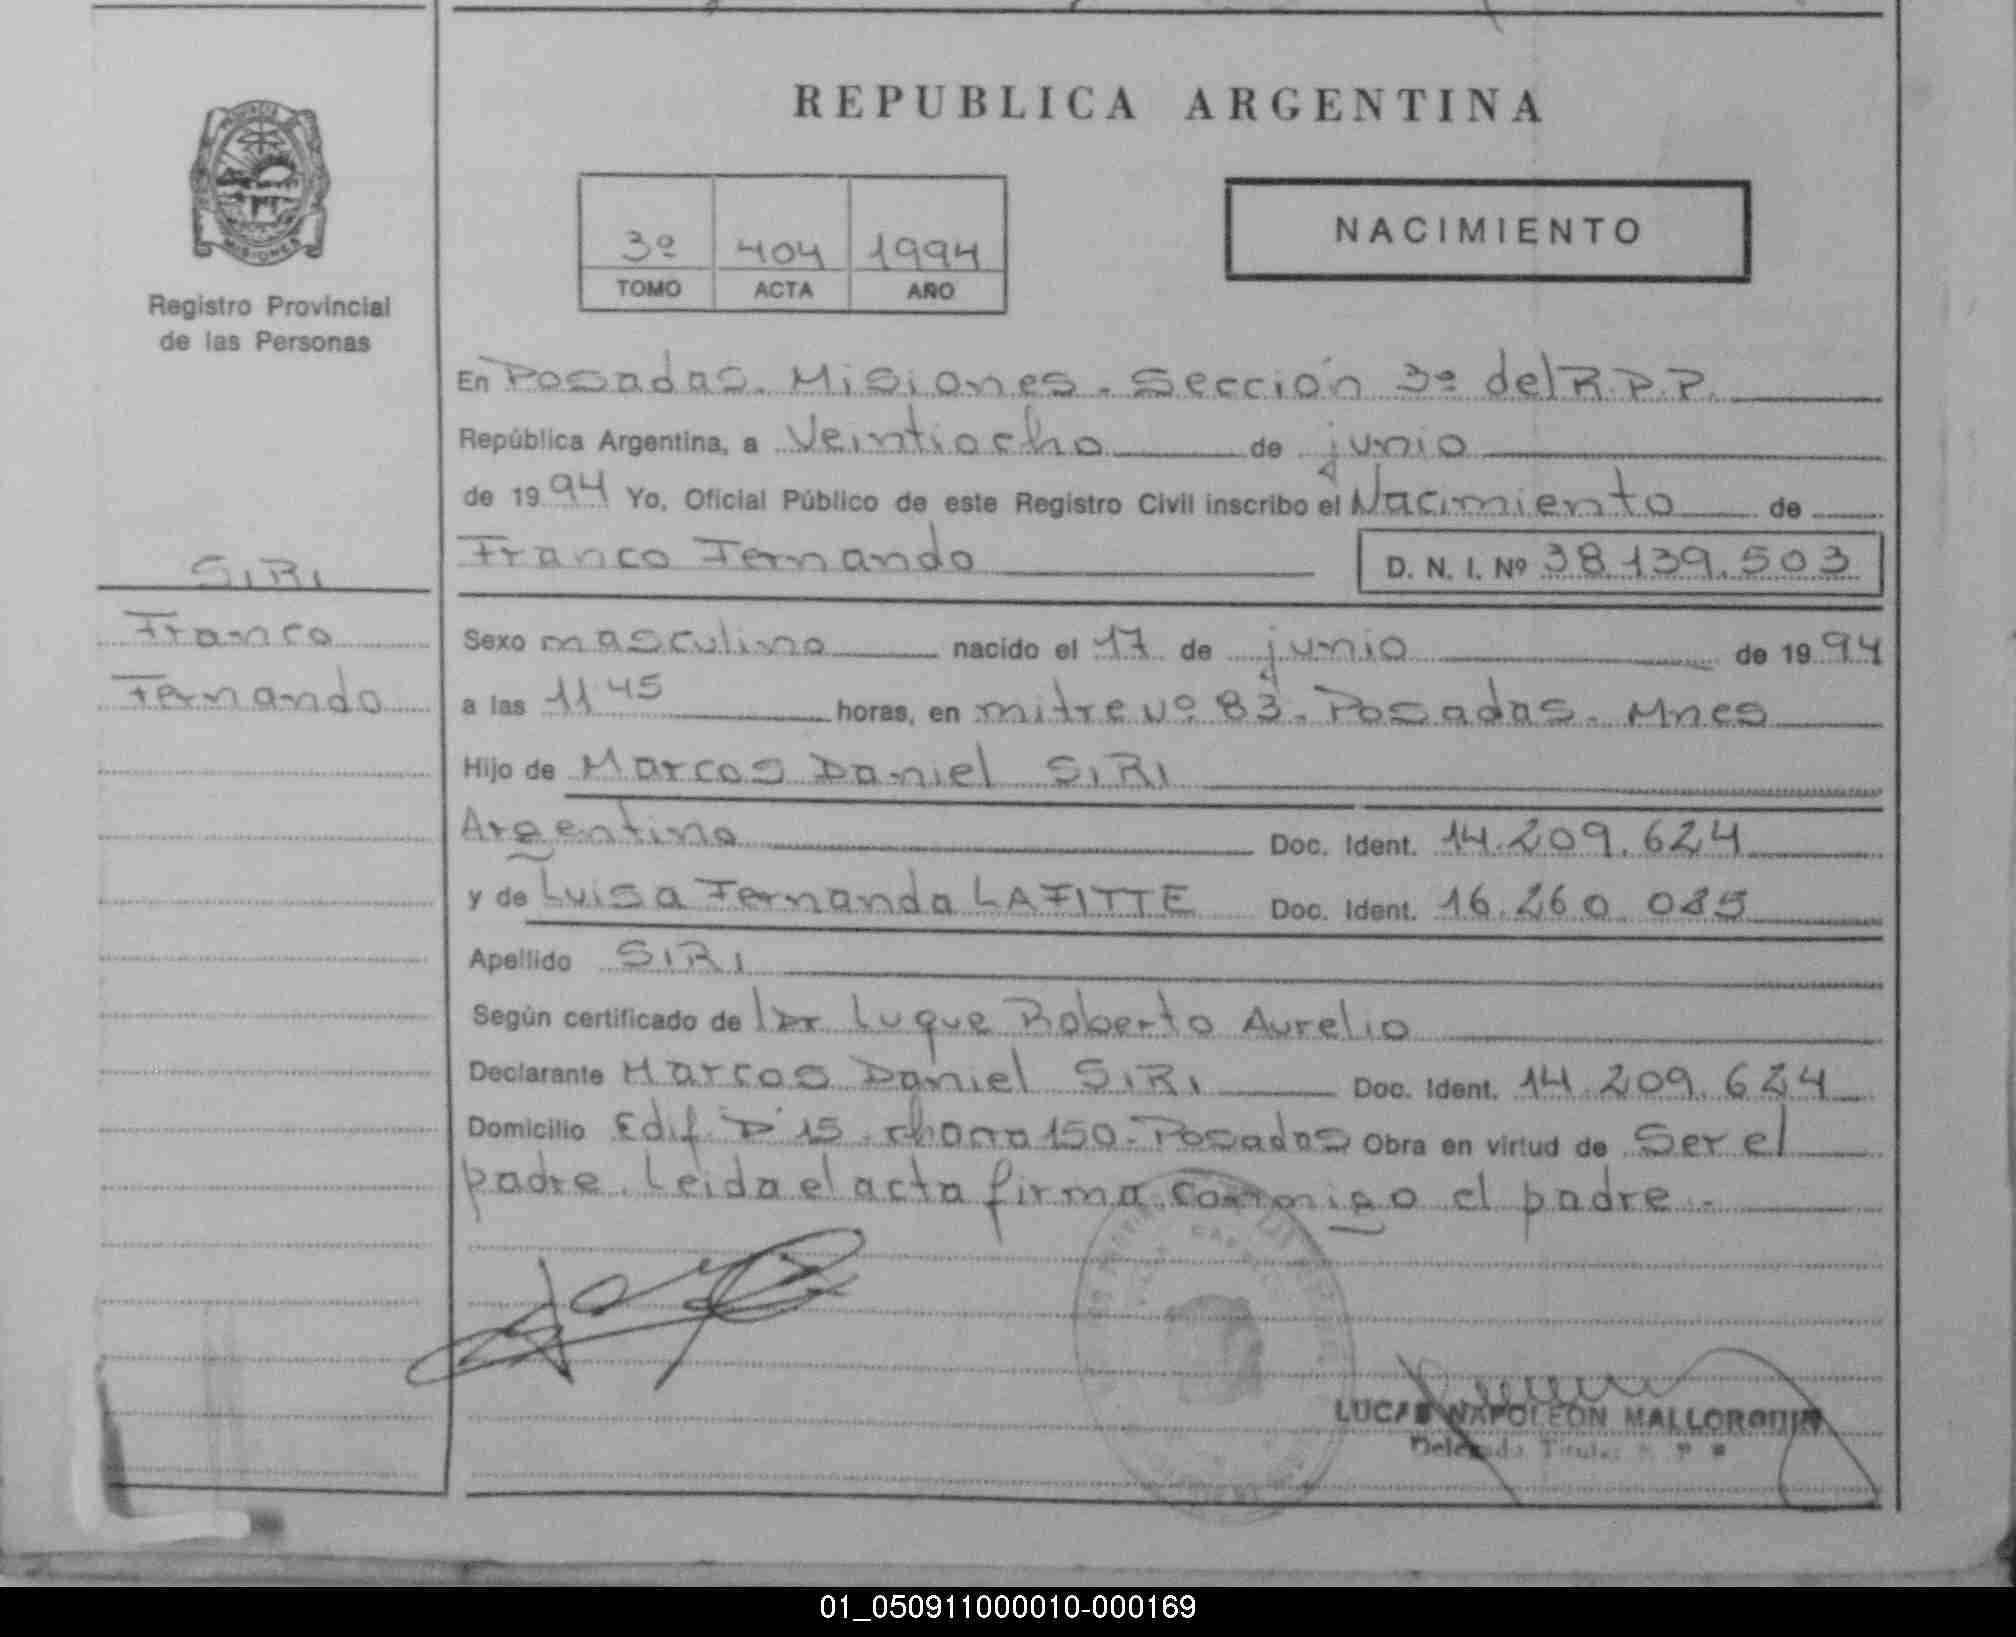 REPUBLICA ARGENTINA
PROVINCIA DE
MISIONES
Registro Provincial
de las Personas
3º 404 1994
TOMO ACTA AÑO
NACIMIENTO
En Posadas. Misiones. Sección 3º del R.P.P.
República Argentina, a Veintiocho de junio
de 1994 Yo, Oficial Público de este Registro Civil inscribo el Nacimiento de
Franco Fernando D. N. I. Nº 38.139.503
SIRI
Franco
Fernando
Sexo masculino nacido el 17 de junio de 1994
a las 11 45 horas, en mitre Nº 83. Posadas. Mnes
Hijo de Marcos Daniel SIRI
Argentino Doc. Ident. 14.209.624
y de Luisa Fernanda LAFITTE Doc. Ident. 16.260.085
Apellido SIRI
Según certificado de Dr Luque Roberto Aurelio
Declarante Marcos Daniel SIRI Doc. Ident. 14.209.624
Domicilio Edif. D 15 chacra 150. Posadas Obra en virtud de Ser el
padre. Leida el acta firma conmigo el padre.-
LUCAS NAPOLEON MALLORQUIN
Delegado Titular
01_050911000010-000169